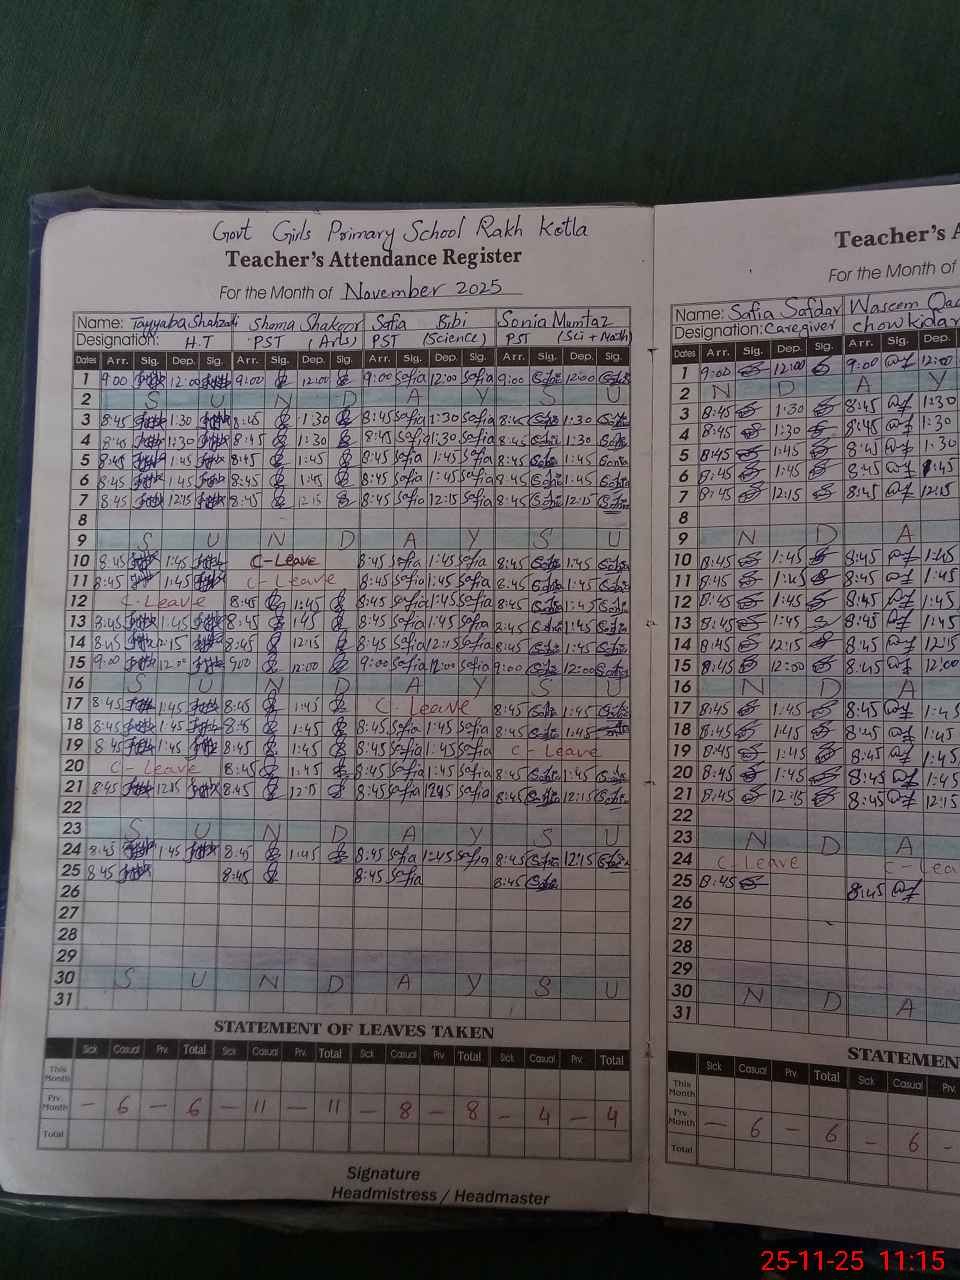 Govt Girls Primary School Rakh Kotla
Teacher's Attendance Register
For the Month of November 2025
Name: Tayyaba Shahzadi Shama Shakoor Safia Bibi Sonia Mumtaz
Designation: H.T PST (Arts) PST (Science) PST (Sci + Math)
Dates Arr. Sig. Dep. Sig. Arr. Sig. Dep. Sig. Arr. Sig. Dep. Sig. Arr. Sig. Dep. Sig.
1 9:00 12:00 9:00 12:00 9:00 Sofia 12:00 Sofia 9:00 12:00
2 S U N D A Y S U
3 8:45 1:30 8:45 1:30 8:45 Sofia 1:30 Sofia 8:45 1:30
4 8:45 1:30 8:45 1:30 8:45 Sofia 1:30 Sofia 8:45 1:30
5 8:45 1:45 8:45 1:45 8:45 Sofia 1:45 Sofia 8:45 1:45
6 8:45 1:45 8:45 1:45 8:45 Sofia 1:45 Sofia 8:45 1:45
7 8:45 12:15 8:45 12:15 8:45 Sofia 12:15 Sofia 8:45 12:15
8
9 S U N D A Y S U
10 8:45 1:45 C-Leave 8:45 Sofia 1:45 Sofia 8:45 1:45
11 8:45 1:45 C-Leave 8:45 Sofia 1:45 Sofia 8:45 1:45
12 C-Leave 8:45 1:45 8:45 Sofia 1:45 Sofia 8:45 1:45
13 8:45 1:45 8:45 1:45 8:45 Sofia 1:45 Sofia 1:45
14 8:45 12:15 8:45 12:15 8:45 Sofia 12:15 Sofia 8:45 1:45
15 9:00 12:00 9:00 12:00 9:00 Sofia 12:00 Sofia 9:00 12:00
16 S U N D A Y S U
17 8:45 1:45 8:45 1:45 C-Leave 8:45 1:45
18 8:45 1:45 8:45 1:45 8:45 Sofia 1:45 Sofia 8:45 1:45
19 8:45 1:45 8:45 1:45 8:45 Sofia 1:45 Sofia C-Leave
20 C-Leave 8:45 1:45 8:45 Sofia 1:45 Sofia 8:45 1:45
21 8:45 12:15 8:45 12:15 8:45 Sofia Sofia 8:45 12:15
22
23 S U N D A Y S U
24 8:45 1:45 8:45 1:45 8:45 Sofia 1:45 Sofia 8:45 12:15
25 8:45 8:45 8:45 Sofia 8:45
26
27
28
29
30 S U N D A Y S U
31
STATEMENT OF LEAVES TAKEN
Sick Casual Prv. Total Sick Casual Prv. Total Sick Casual Prv. Total Sick Casual Prv. Total
This Month
Prv. Month - 6 - 6 - 11 - 11 - 8 - 8 - 4 - 4
Total
Signature
Headmistress / Headmaster
Teacher's A
For the Month of
Name: Safia Safdar Waseem
Designation: Caregiver chowkidar
Dates Arr. Sig. Dep. Sig. Arr. Sig. Dep.
1 9:00 12:00 9:00 12:00
2 N D A Y
3 8:45 1:30 8:45 1:30
4 8:45 1:30 8:45 1:30
5 8:45 1:45 8:45 1:30
6 8:45 1:45 8:45 1:45
7 8:45 12:15 8:45 12:15
8
9 N D A
10 8:45 1:45 8:45 1:45
11 8:45 1:45 8:45 1:45
12 8:45 1:45 8:45 1:45
13 8:45 1:45 8:45 1:45
14 8:45 12:15 8:45 12:15
15 8:45 12:00 8:45 12:00
16 N D A
17 8:45 1:45 8:45 1:45
18 8:45 1:45 8:45 1:45
19 8:45 1:45 8:45 1:45
20 8:45 1:45 8:45 1:45
21 8:45 12:15 8:45 12:15
22
23 N D A
24 C-Leave C-Lea
25 8:45 8:45
26
27
28
29
30 N D A
31
STATEMEN
Sick Casual Prv. Total Sick Casual Prv.
This Month
Prv. Month - 6 - 6 - 6 -
Total
25-11-25 11:15